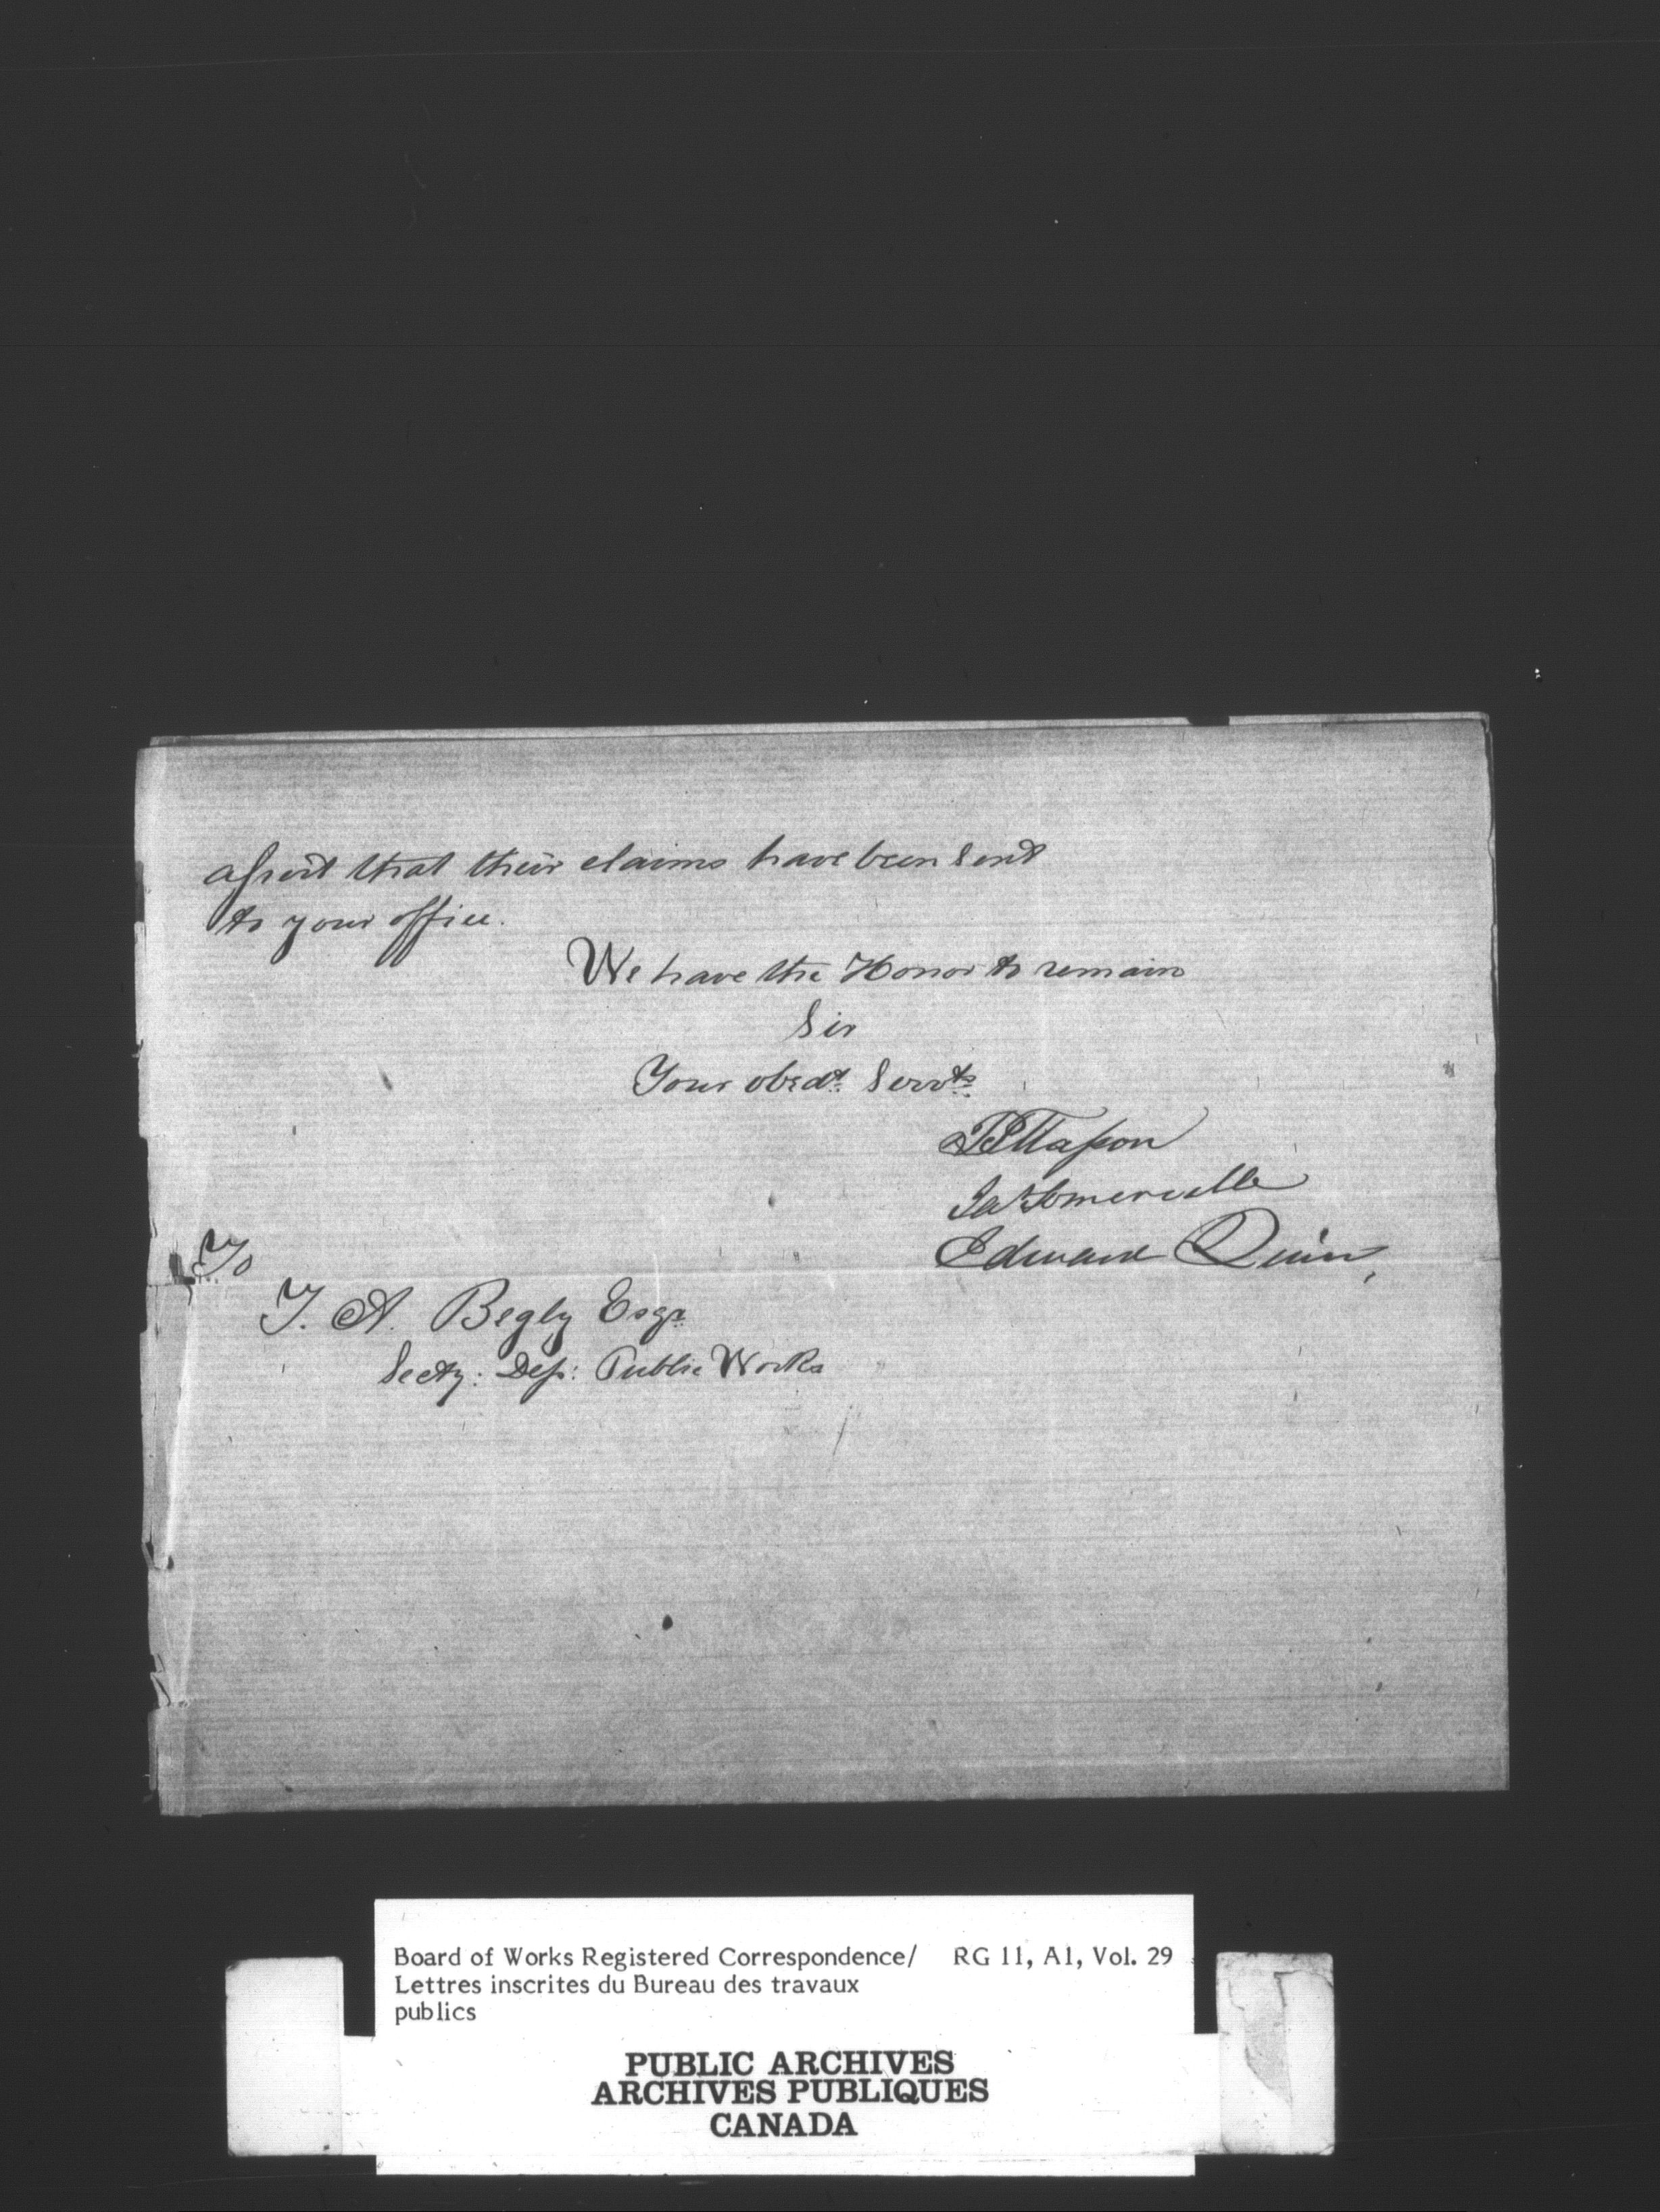 assert that their claims have been sent
to your office.
We have the Honor to remain
Sir
Your obedt. Servts.
Masson
Jas Somerville
Edward Quinn,
To
T. A. Begly Esqr.
Secty: Dep: Public Works
Board of Works Registered Correspondence/ RG 11, A1, Vol. 29
Lettres inscrites du Bureau des travaux
publics
PUBLIC ARCHIVES
ARCHIVES PUBLIQUES
CANADA